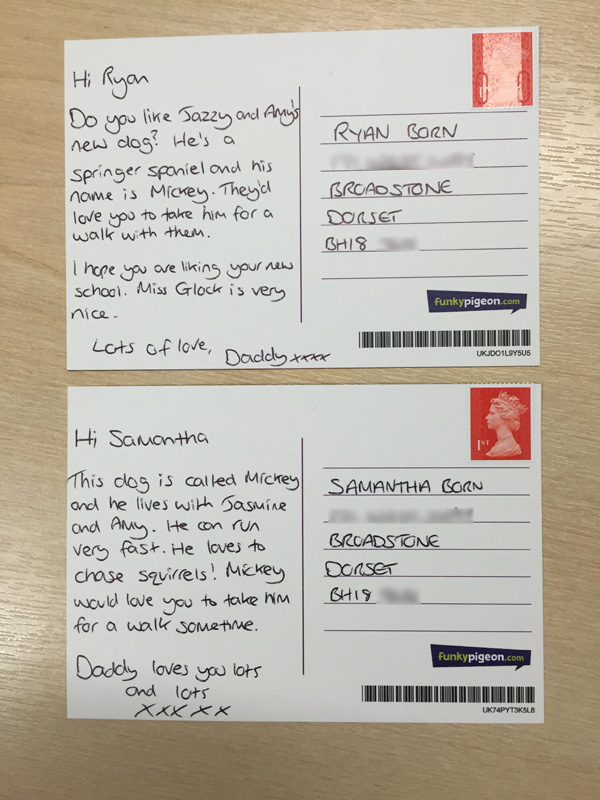 Hi Ryan
Do you like Jazzy and Amy's
new dog? He's a
springer spaniel and his
name is Mickey. They'd
love you to take him for a
walk with them.
I hope you are liking your new
school. Miss Glock is very
nice.
Lots of love, Daddy xxxx
RYAN BORN
BROADSTONE
DORSET
BH18
funkypigeon.com
UKJDO1L9Y5U5
Hi Samantha
This dog is called Mickey
and he lives with Jasmine
and Amy. He can run
very fast. He loves to
chase squirrels! Mickey
would love you to take him
for a walk sometime.
Daddy loves you lots
and lots
xxxxx
1ST
SAMANTHA BORN
BROADSTONE
DORSET
BH18
funkypigeon.com
UK74PYT3K5L8